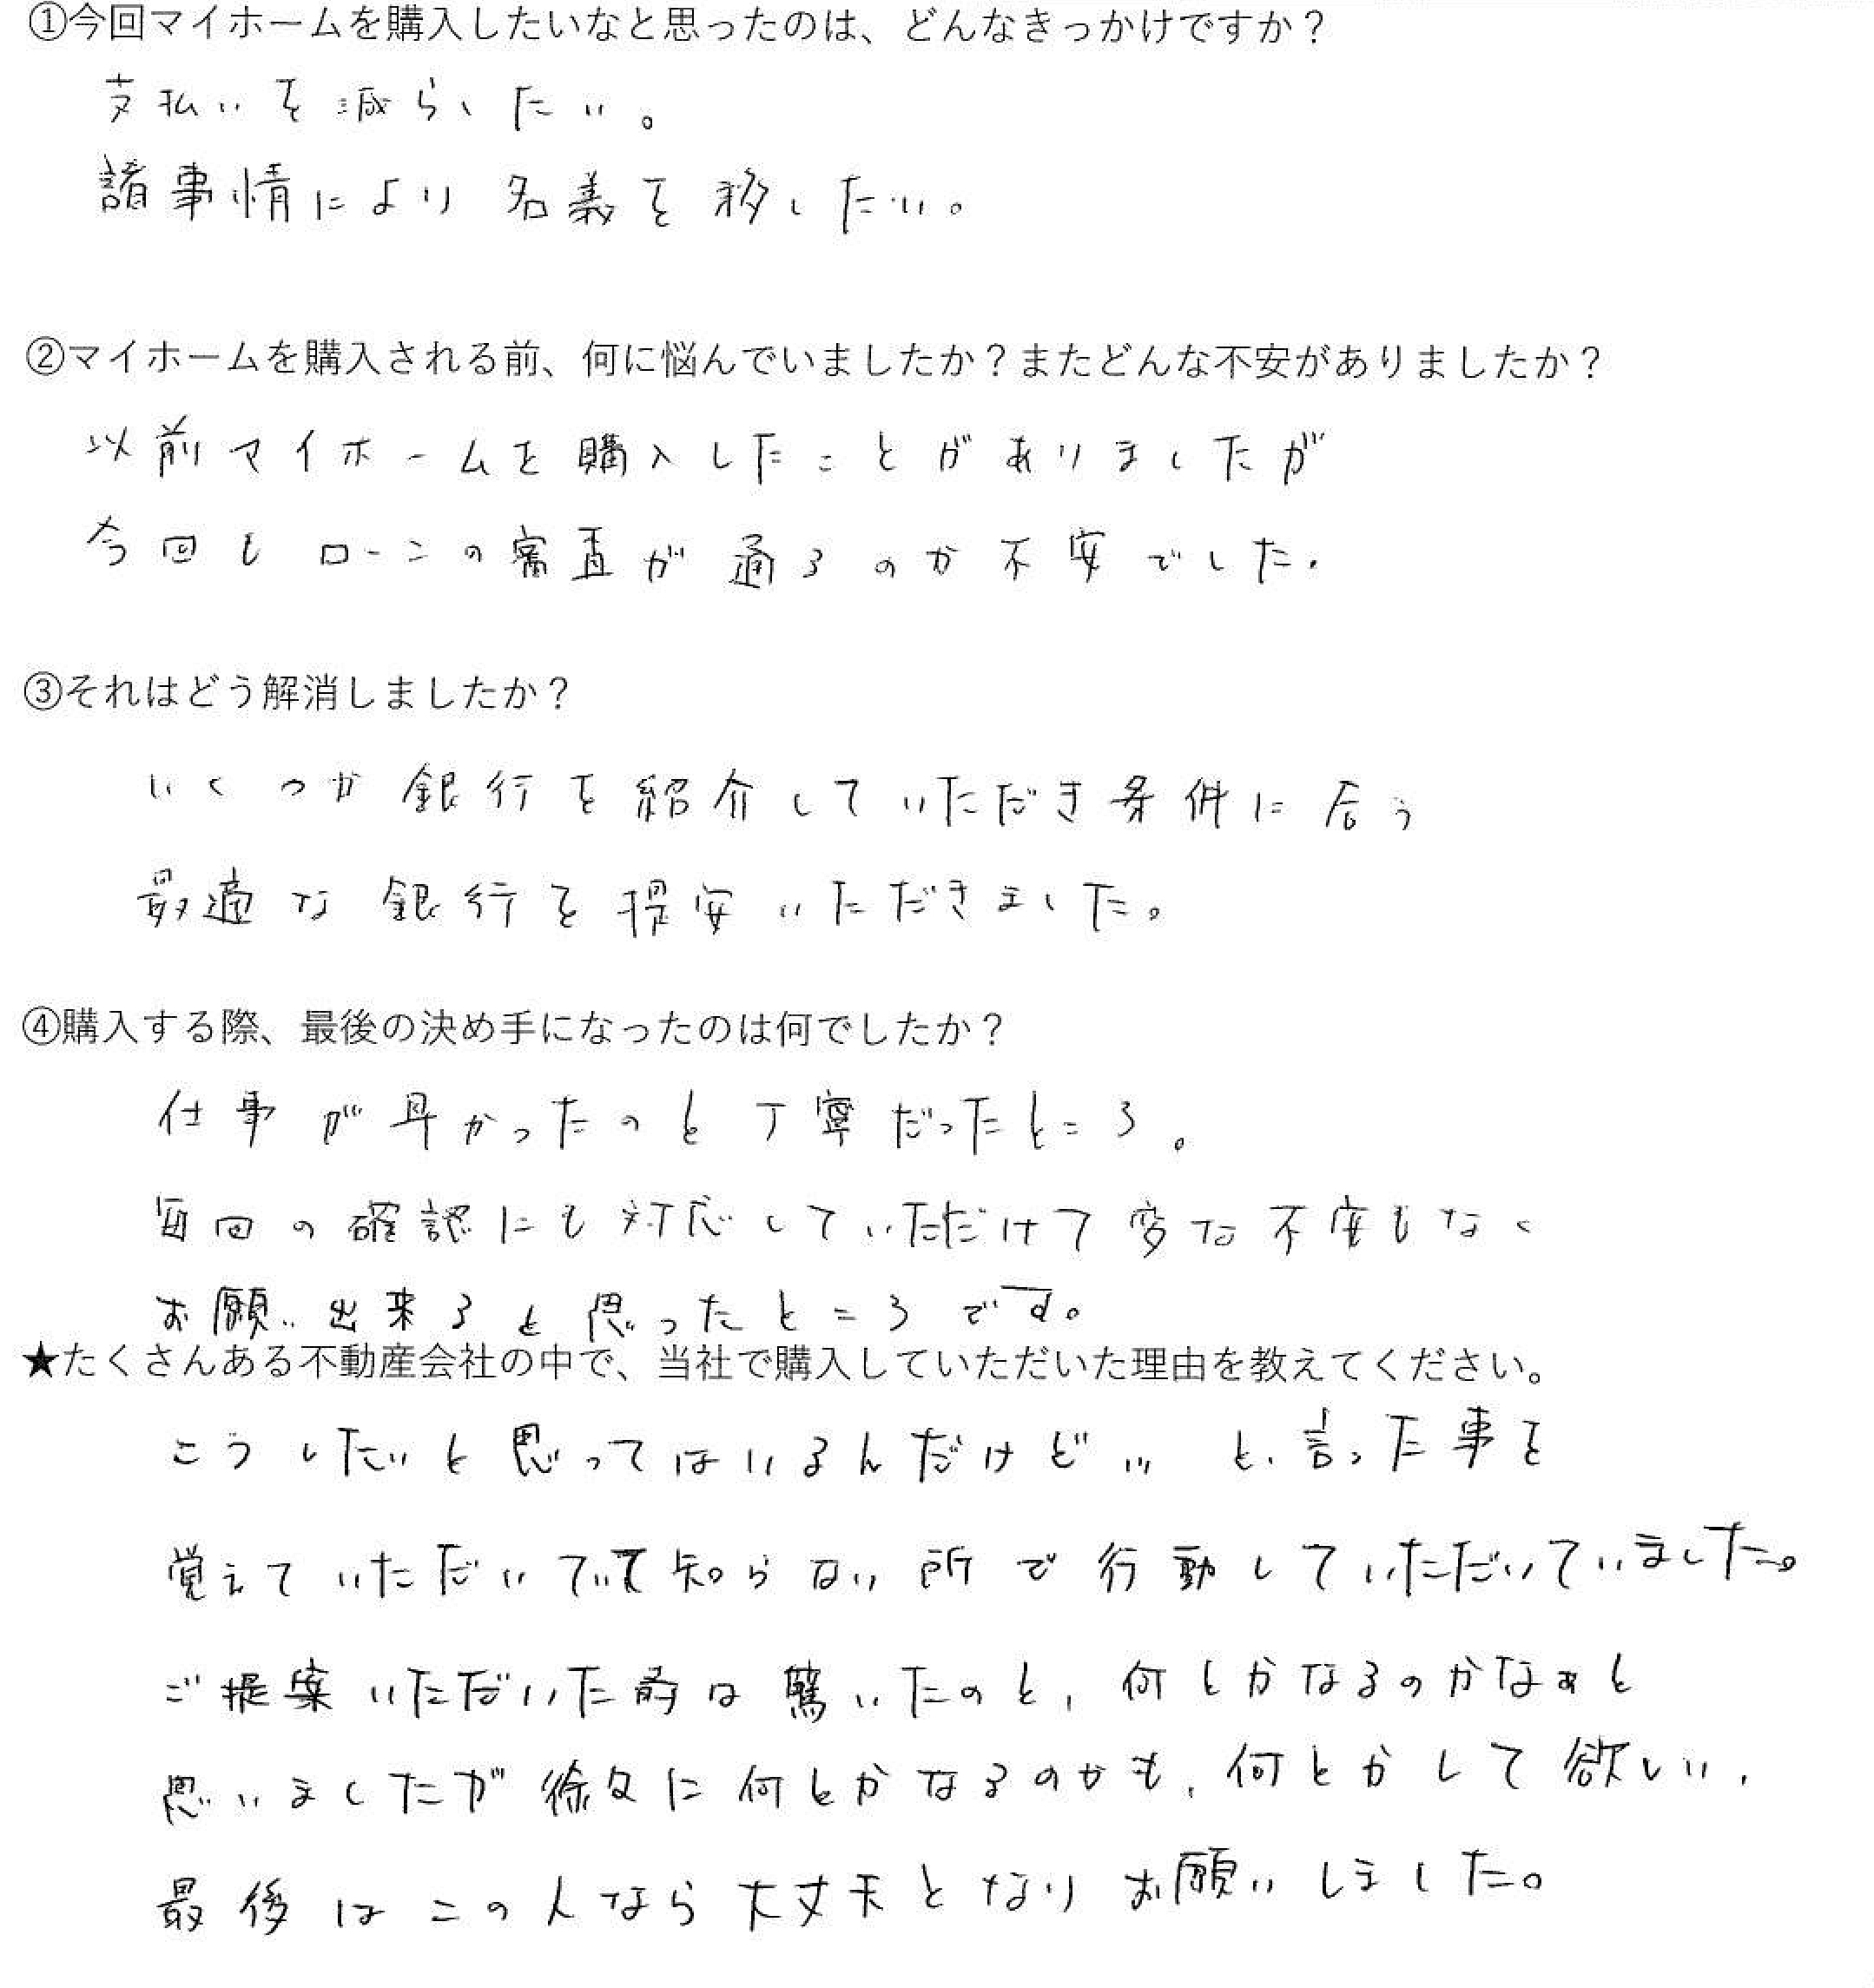 ①今回マイホームを購入したいなと思ったのは、どんなきっかけですか？
支払いを減らしたい。
諸事情により名義を移したい。
②マイホームを購入される前、何に悩んでいましたか？またどんな不安がありましたか？
以前マイホームを購入したことがありましたが
今回もローンの審査が通るのか不安でした.
③それはどう解消しましたか？
いくつか銀行を紹介していただき条件に合う
最適な銀行を提案いただきました。
④購入する際、最後の決め手になったのは何でしたか？
仕事が早かったのと丁寧だったところ。
毎回の確認にも対応していただけて変な不安もなく
お願い出来ると思ったところです。
★たくさんある不動産会社の中で、当社で購入していただいた理由を教えてください。
こうしたいと思ってはいるんだけど… と、言った事を
覚えていただいていて知らない所で行動していただいていました。
ご提案いただいた時は驚いたのと、何とかなるのかなぁと
思いましたが徐々に何とかなるのかも、何とかして欲しい、
最後はこの人なら大丈夫となりお願いしました。